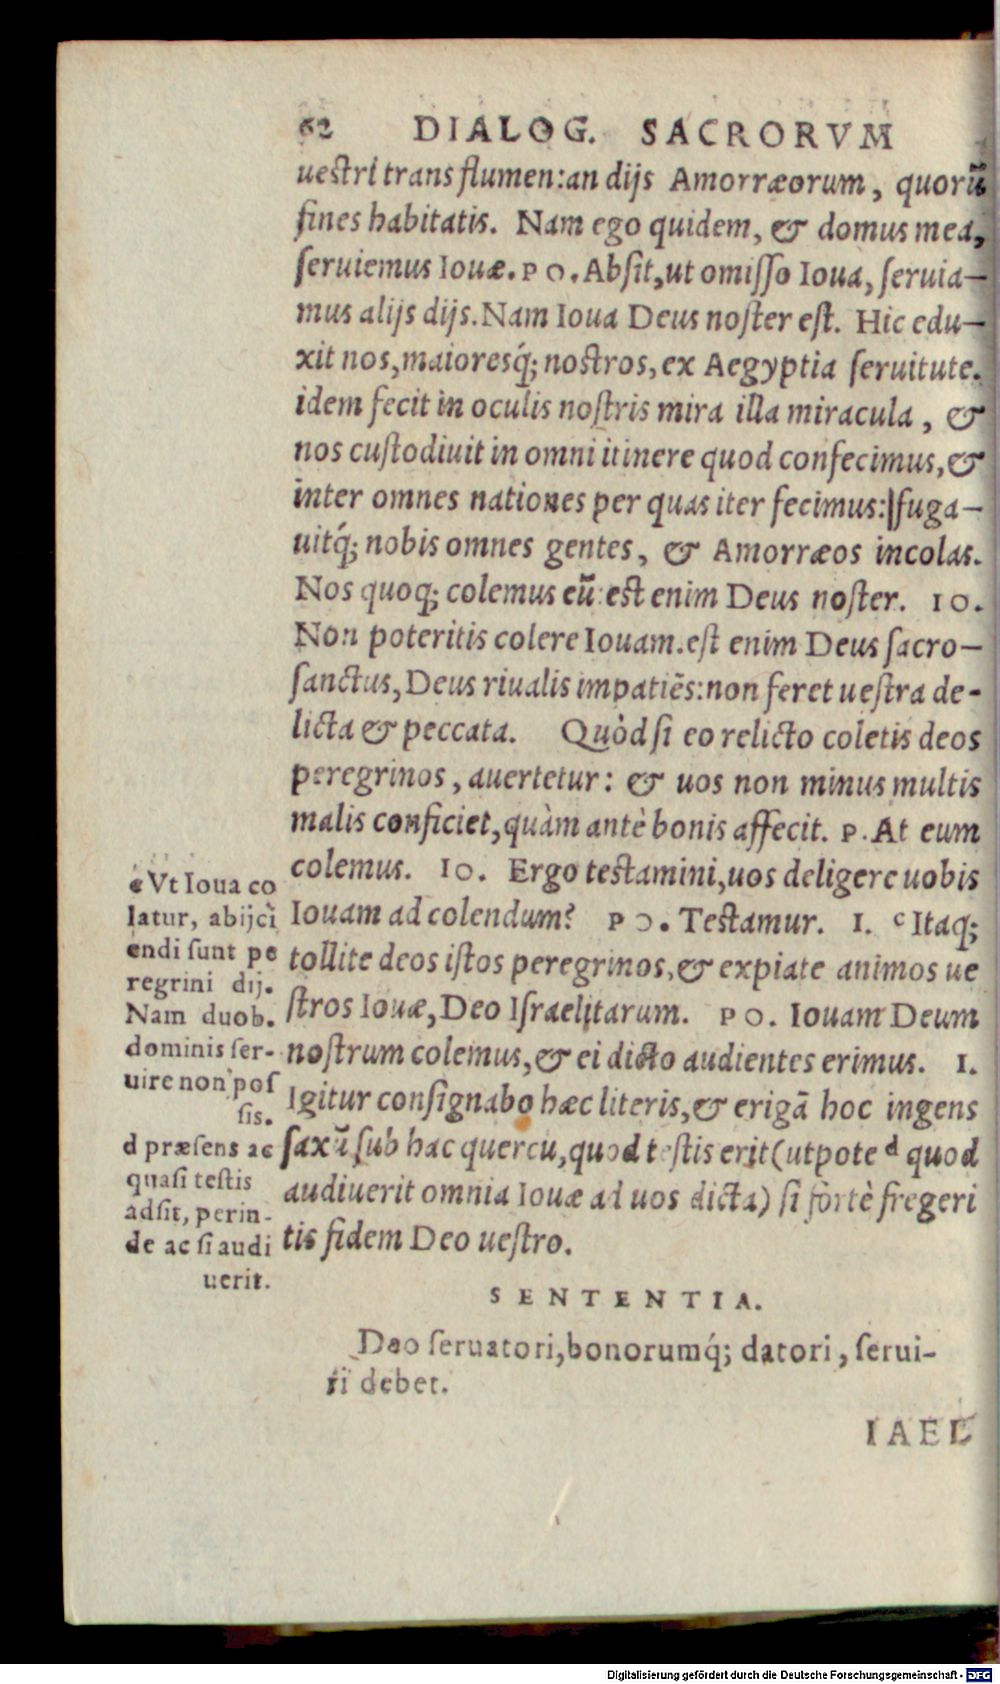 62 DIALOG. SACRORVM
uestri trans flumen: an dijs Amorræorum, quorũ
fines habitatis. Nam ego quidem, & domus mea,
seruiemus Iouæ. PO. Absit, ut omisso Ioua, seruia-
mus alijs dijs. Nam Ioua Deus noster est. Hic edu-
xit nos, maioresq́; nostros, ex Aegyptia seruitute.
idem fecit in oculis nostris mira illa miracula, &
nos custodiuit in omni itinere quod confecimus, &
inter omnes nationes per quas iter fecimus: fuga-
uitq́; nobis omnes gentes, & Amorræos incolas.
Nos quoq; colemus eũ: est enim Deus noster. IO.
Non poteritis colere Iouam. est enim Deus sacro-
sanctus, Deus riualis impatiẽs: non feret uestra de-
licta & peccata. Quòd si eo relicto coletis deos
peregrinos, auertetur: & uos non minus multis
malis conficiet, quàm antè bonis affecit. P. At eum
colemus. IO. Ergo testamini, uos deligere uobis
Iouam ad colendum? PO. Testamur. I. c Itaq;
tollite deos istos peregrinos, & expiate animos ue
stros Iouæ, Deo Israelitarum. PO. Iouam Deum
nostrum colemus, & ei dicto audientes erimus. I.
Igitur consignabo hæc literis, & erigã hoc ingens
saxũ sub hac quercu, quod testis erit (utpote d quod
audiuerit omnia Iouæ ad uos dicta) si fortè fregeri
tis fidem Deo uestro.
c Vt Ioua co
latur, abijci
endi sunt pe
regrini dij.
Nam duob.
dominis ser-
uire non pos
sis.
d præsens ac
quasi testis
adsit, perin-
de ac si audi
uerit.
SENTENTIA.
Deo seruatori, bonorumq́; datori, serui-
ri debet.
IAEL
Digitalisierung gefördert durch die Deutsche Forschungsgemeinschaft - DFG